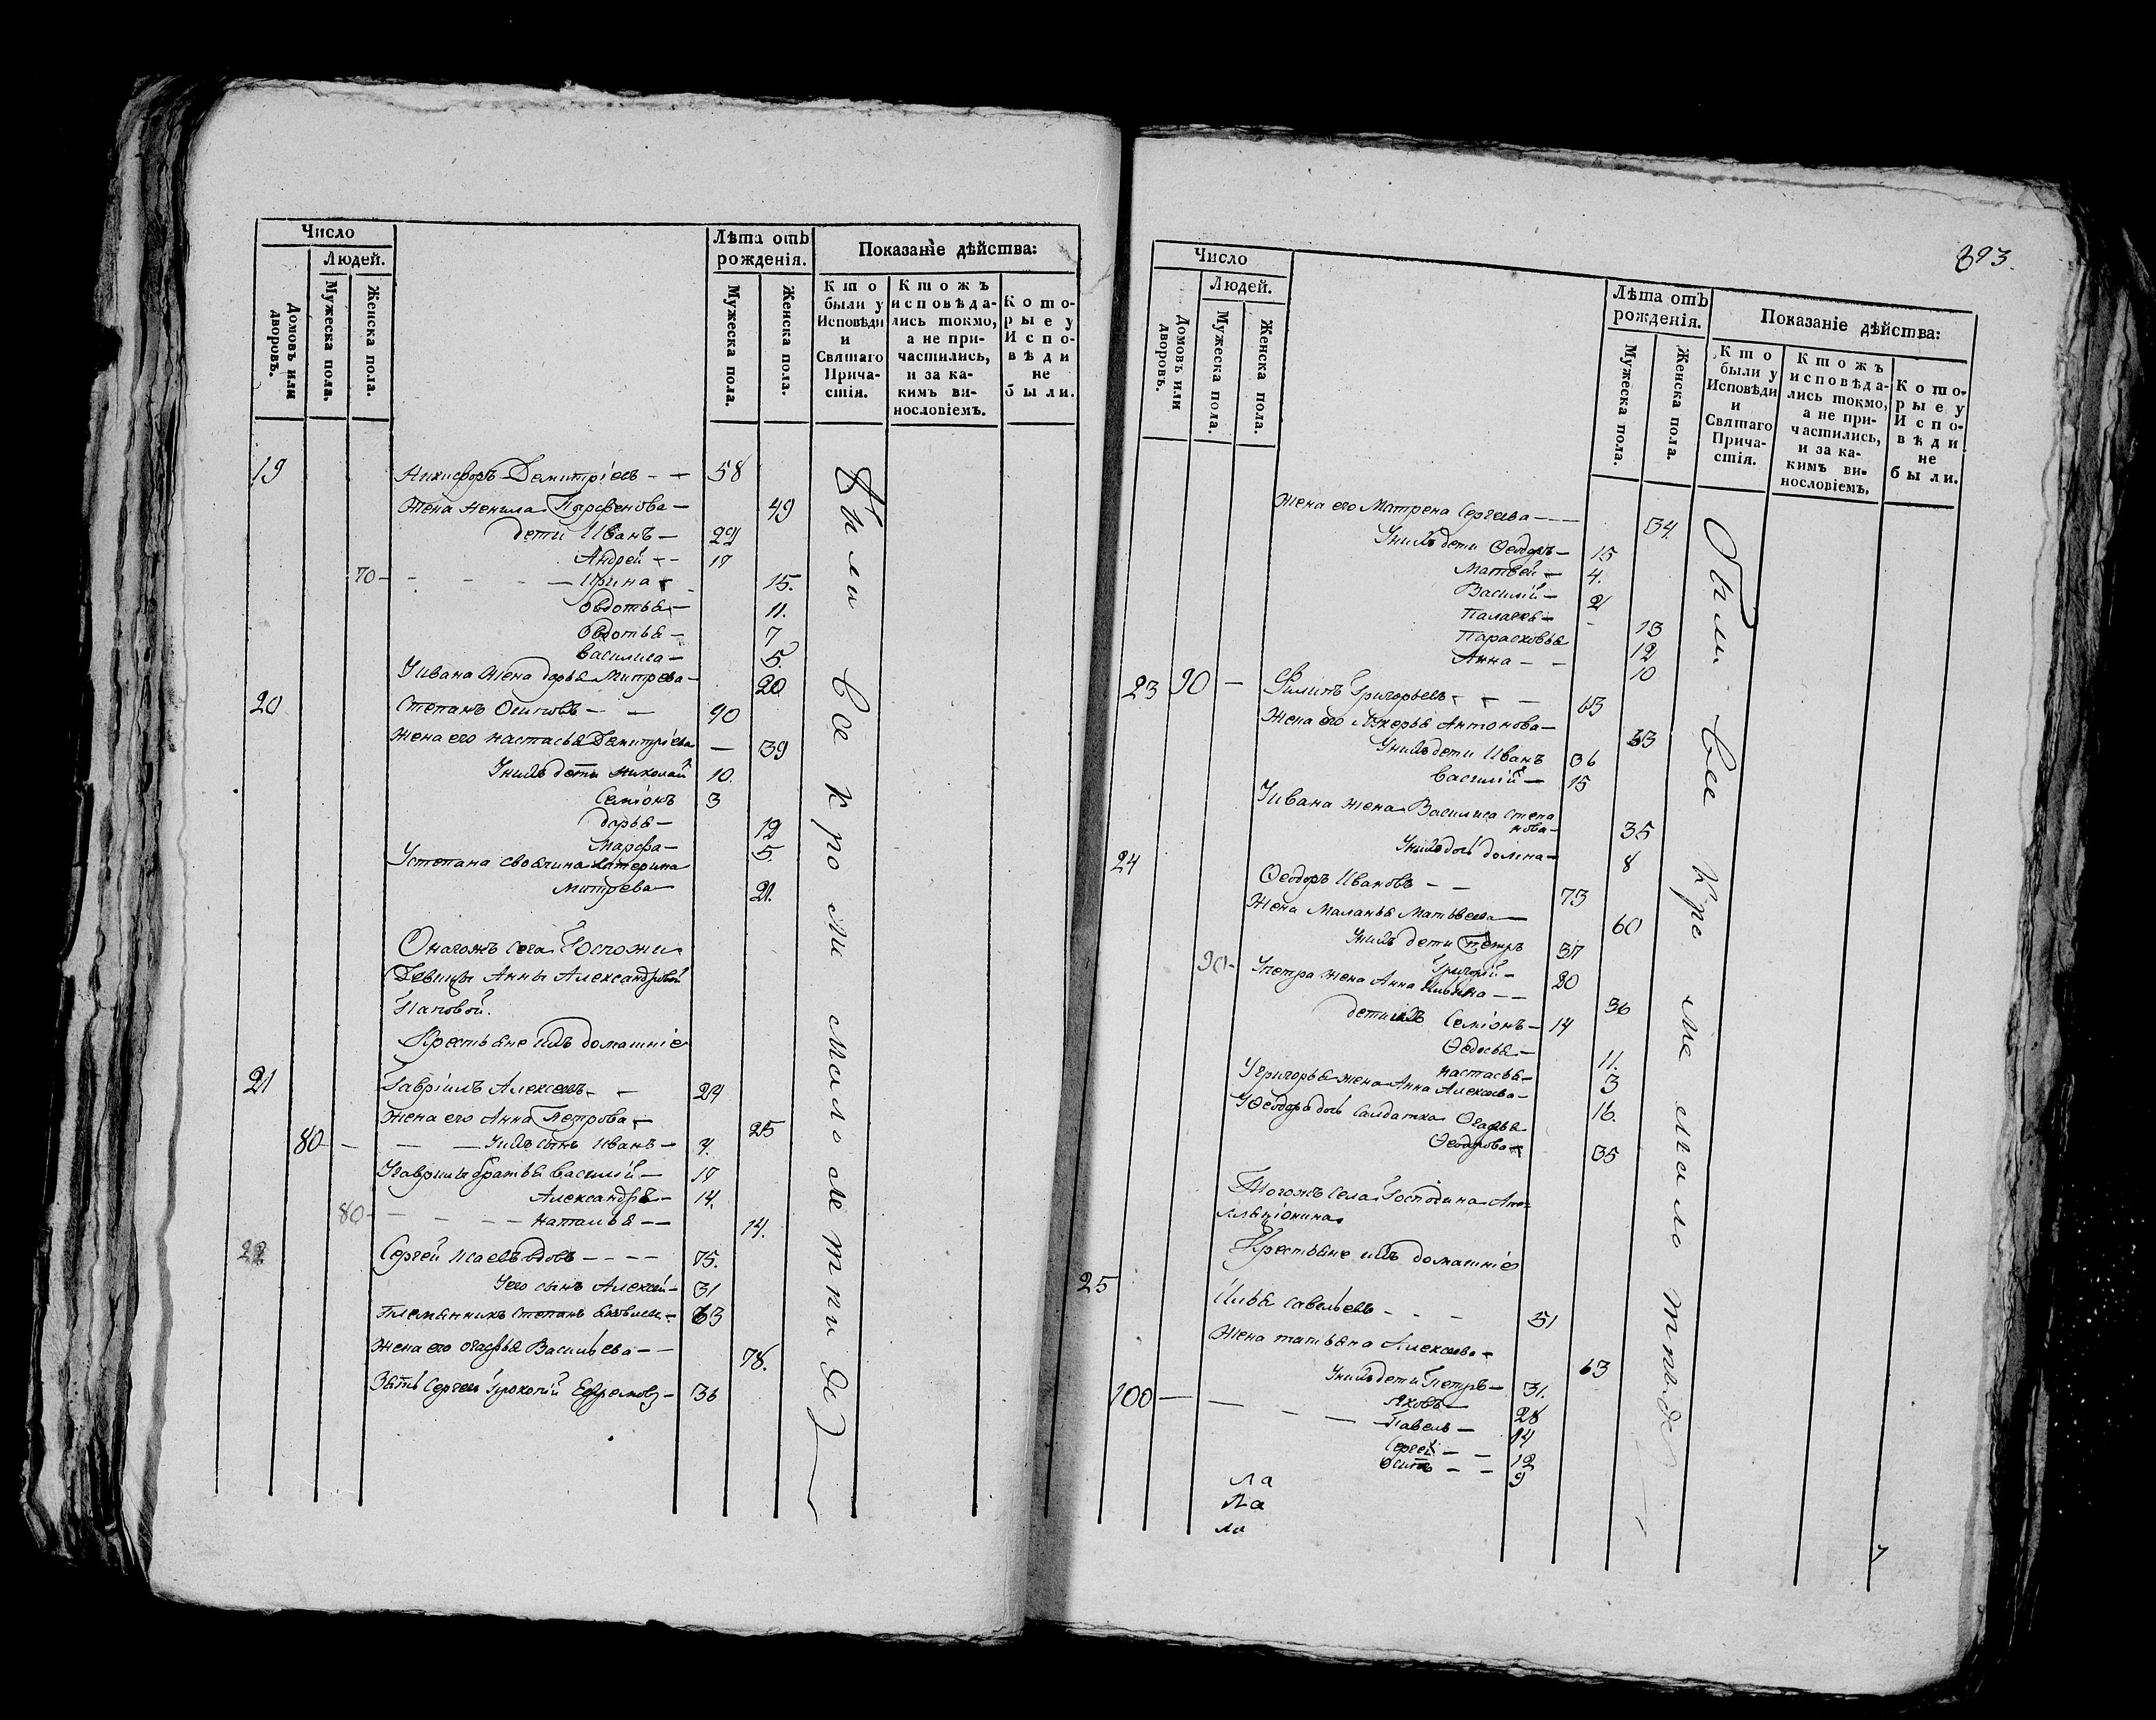 Число
Людей.
Домовъ или дворовъ.
Мужеска пола.
Женска пола.
Лѣта отъ рожденія.
Мужеска пола.
Женска пола.
Показаніе дѣйства:
Кто были у Исповѣди и Святаго Прича-стія.
Ктожъ исповѣда-лись токмо, а не при-частились, и за ка-кимъ ви-нословіемъ.
Кото-рые у Испо-вѣди не были.
19 Никифоръ Демитріевъ - - 58
Жена Ненила Парфенова - 49
дети Иванъ - 22
Андрей - - 17
70 - - - - Ирина - 15.
Овдотья - 11.
Овдотья - 7
Василиса - 5.
У Ивана жена дарья Митрева - 20
20 Степанъ Осиповъ - - 40
Жена его настасья Демитріева - 39
У нихъ дети Николай 10.
Семіонъ 3
дарья - 12
Марфа - 5.
У степана своячина катерина
Митрева 21.
Онагожъ села Госпожи
Девицы Анны Александровой
Паповой.
Крестьяне ихъ домашніе
21 Гавріилъ Алексеевъ - - 24
Жена его Анна Петрова - 25
80 - - - У нихъ сынъ Иванъ - 4.
У гавриилы братья Василій - 17
Александръ - 14.
80 - - - - Наталья - - 14.
22 Сергей Исаевъ вдовъ - - - - 75.
У его сынъ Алексей - 31
Племянникъ Степанъ - 63
Жена его огафья Васильева - - 78.
Зять Сергея Прокопій Ефремовъ - 36
Были все кроме малолетних
893.
Число
Людей.
Домовъ или дворовъ.
Мужеска пола.
Женска пола.
Лѣта отъ рожденія.
Мужеска пола.
Женска пола.
Показаніе дѣйства:
Кто были у Исповѣди и Святаго Прича-стія.
Ктожъ исповѣда-лись токмо, а не при-частились, и за ка-кимъ ви-нословіемъ.
Кото-рые у Испо-вѣди не были.
Жена его Матрена Сергеева - - - 34.
У нихъ дети Ѳеодоръ - 15
Матвей - 4.
Василій - 2
Палагея - - 13
Парасковья 12
Анна - - 10
23 90 - Филипъ Григорьевъ - - - 63
Жена его Лукерья Антонова - 33
У нихъ дети Иванъ 36
Василій - 15
У Ивана жена Василиса Степа
нова - 35
У нихъ дочь домна - 8
24 Ѳеодоръ Ивановъ - - 73
Жена Маланья Матвеева - 60
У нихъ дети Петръ 37
Григорій - 20
90 - У петра жена Анна - - 36
дети ихъ Семіонъ - 14
Ѳедосья - 11.
Настасья - 3
У Григорья жена Анна Алексеева - 16.
У Ѳеодора дочь Салдатка Огафья
Ѳеодорова - 35
Тогожъ Села Господина
Крестьяне ихъ домашніе
25 Илья Савельевъ - - - 51
Жена татьяна Алексеева - 63
У нихъ дети Петръ - 31.
100 - - Яковъ - 28
- - Павелъ - 14
Сергей - - 12
Осипъ - - 9
ла
ла
ла
Были все кроме малолетних